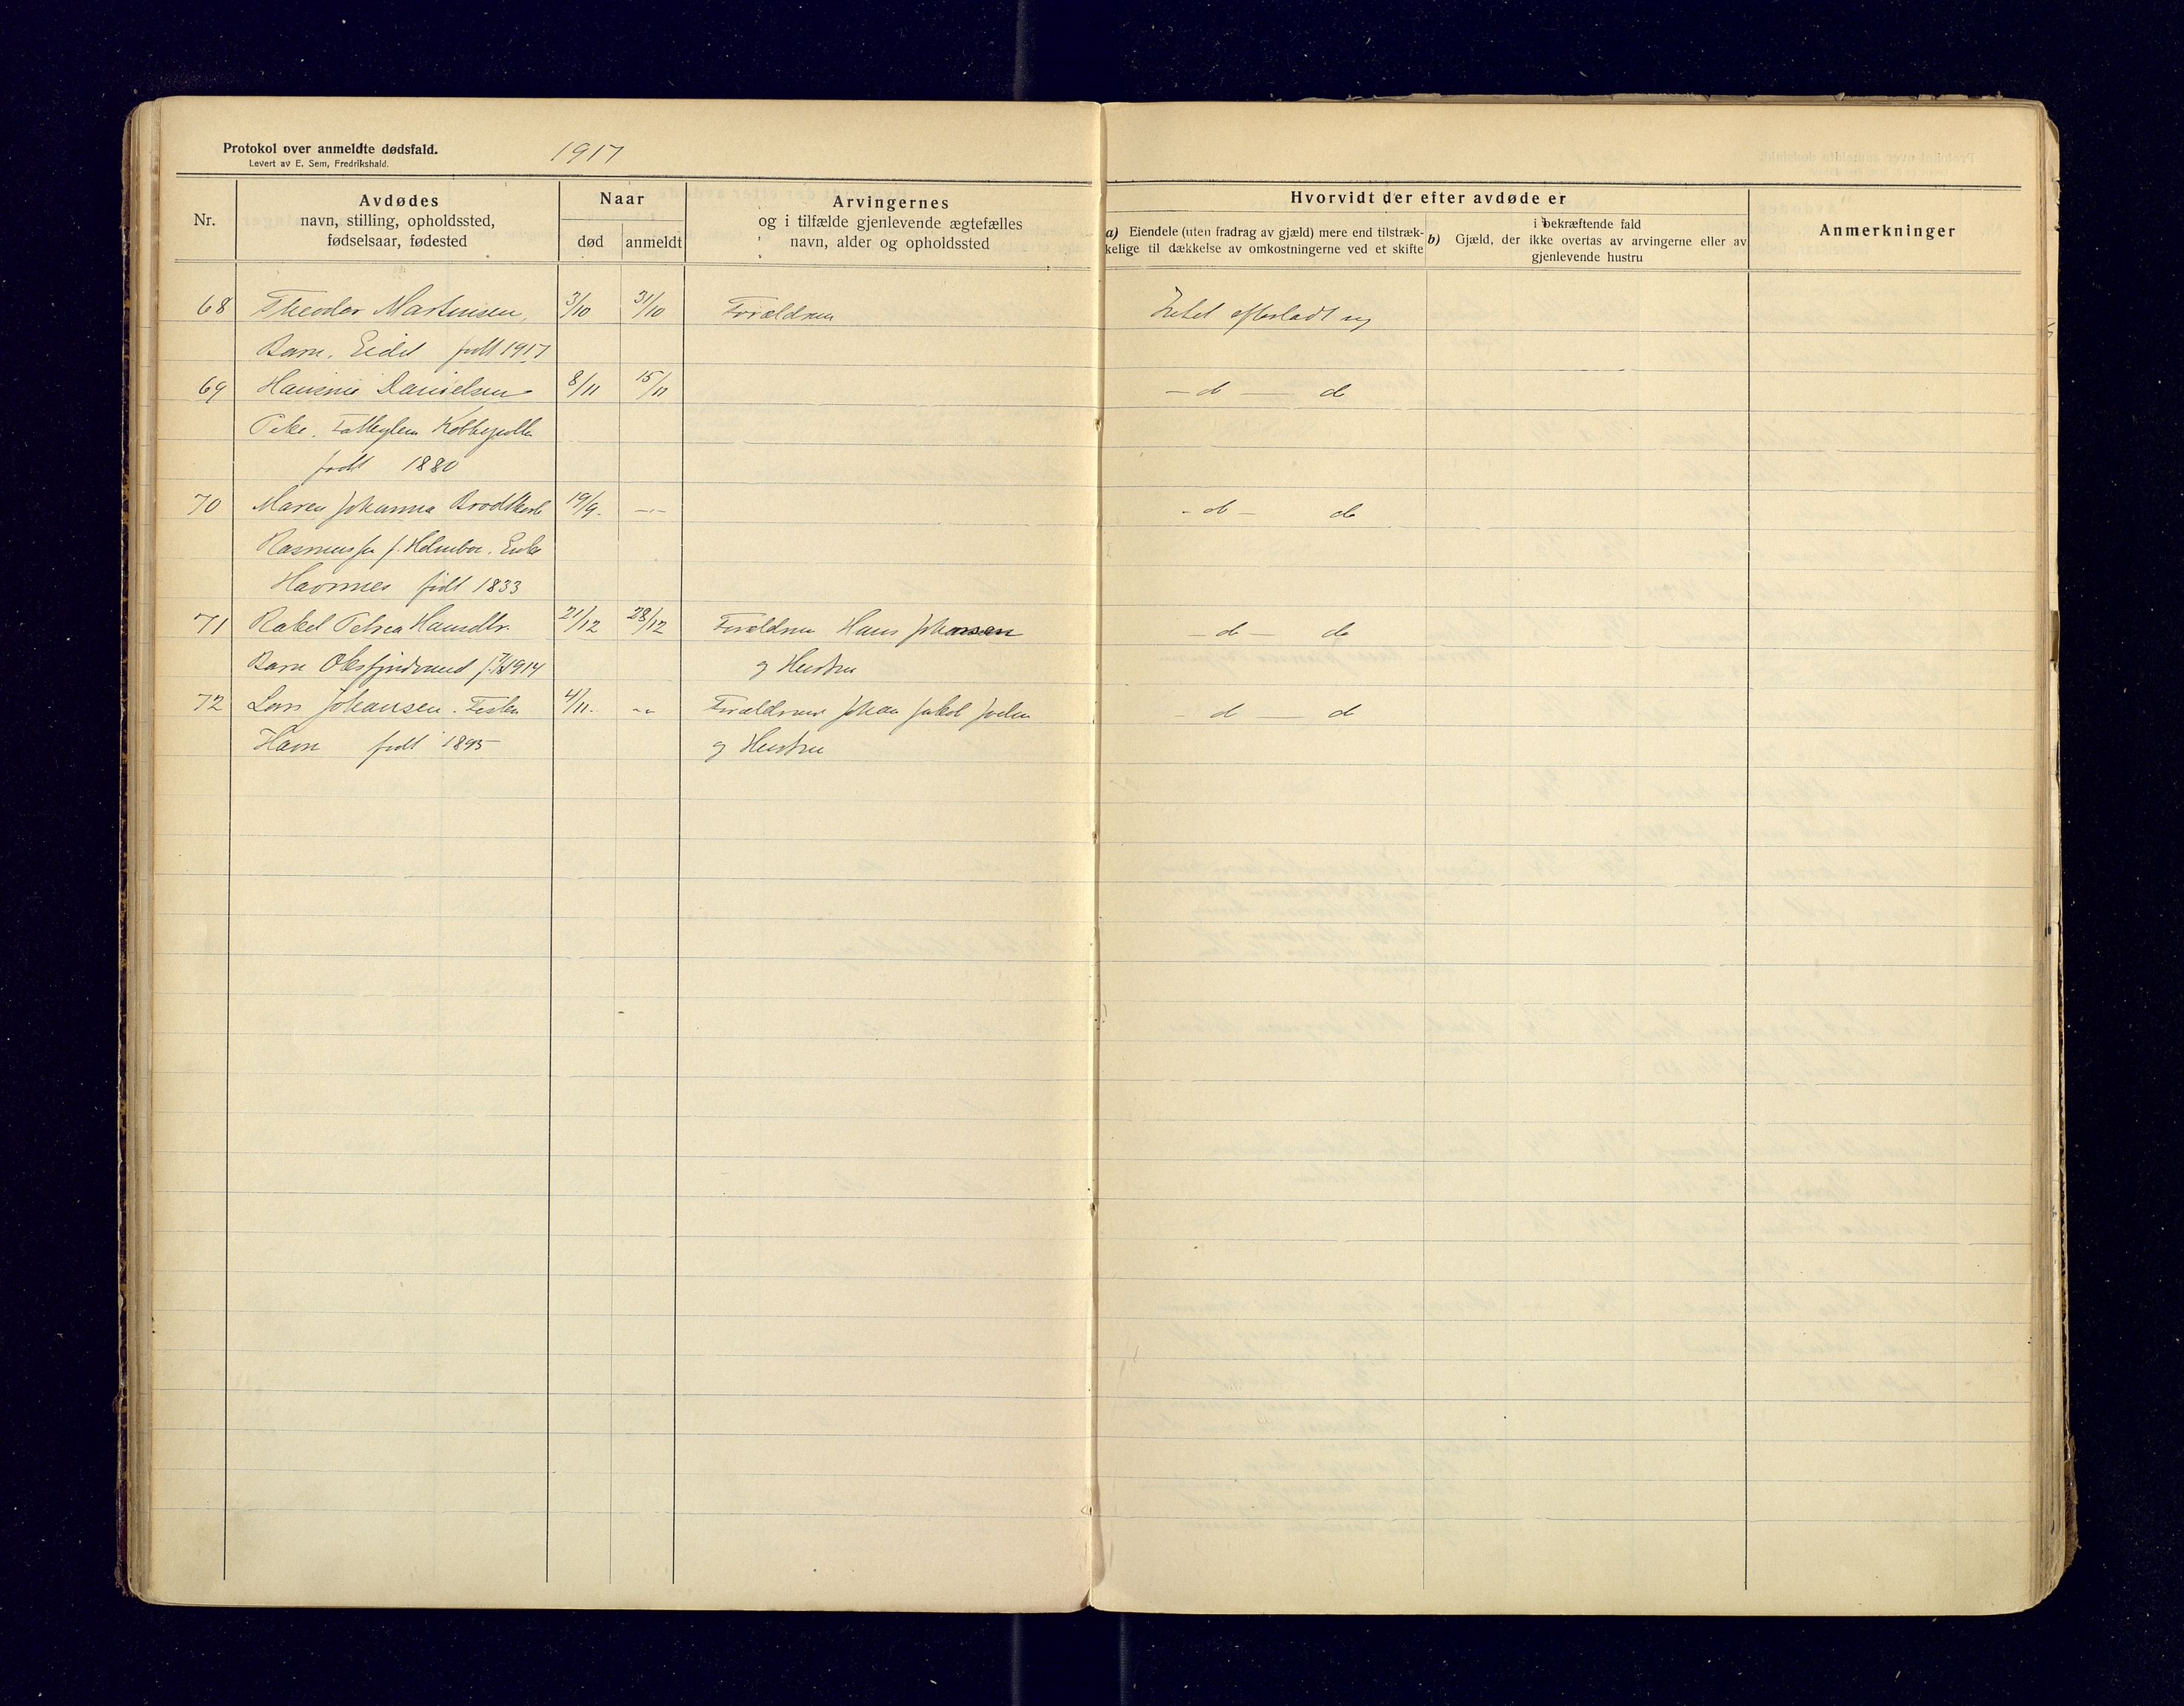 Protokol over anmeldte dødsfald.
Levert av E. Sem, Fredrikshald.
1917
Nr.
Avdødes
navn, stilling, opholdssted,
fødselsaar, fødested
Naar
død
anmeldt
Arvingernes
og i tilfælde gjenlevende ægtefælles
navn, alder og opholdssted
Hvorvidt der efter avdøde er
a) Eiendele (uten fradrag av gjæld) mere end tilstræk-
kelige til dækkelse av omkostningerne ved et skifte
i bekræftende fald
b) Gjæld, der ikke overtas av arvingerne eller av
gjenlevende hustru
Anmerkninger
68 Theodor Martinsen, 3/10 31/10 Forældrene Intet efterladt sig
Barn. Eidet født 1917
69 Hansine Danielsen 8/11 15/11 - d — d
Pike. Kobbepollen
født 1880
70 Maren Johanna Brodtkorb 19/9 -"- - d — do
Rasmussen f. Holmboe. Enke
Havnnes født 1833
71 Rakel Petrea Hansdtr. 21/12 28/12 Forældrene Hans Johansen - d — do
Barn Oksfjordvand 1914
og Hustru
72 Lars Johansen. Fisker 4/11 -"- Forældrene Johan Jakob - d — d
Havn født 1895
og Hustru